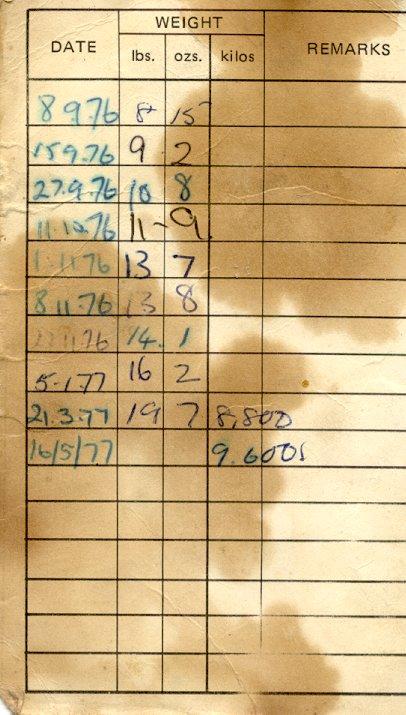 WEIGHT
DATE lbs. ozs. kilos REMARKS
8 9.76 8 15
15.9.76 9 2
27.9.76 10 8
11.10.76 11-9.
1.11.76 13 7
8.11.76 13 8
76 14. 1
5.1.77 16 2
21.3.77 19 7 8,800
16/5/77 9.600